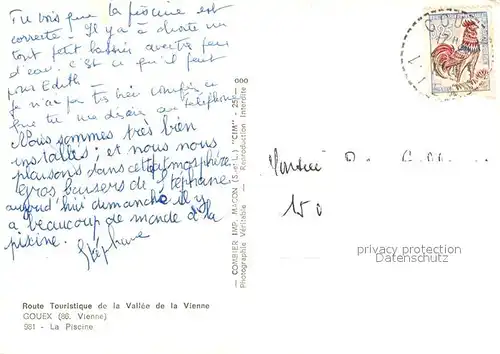 Tu vois que la piscine est
correcte - Il y a à droite un
tout petit bassin avec très peu
d'eau. c'est ce qu'il faut
pour Edith -
je n'ai pas très bien compris ce
que tu me disais au téléphone
Nous sommes très bien
installés; et nous nous
plaisons dans cette atmosphère
gros baisers de Stéphane
aujourd'hui dimanche il y
a beaucoup de monde à la
piscine.
Stéphane
Route Touristique de la Vallée de la Vienne
GOUEX (86. Vienne)
981 - La Piscine
— COMBIER IMP. MACON (S.-et-L.) "CIM" - 25 - 000
Photographie Véritable - Reproduction Interdite
GOUEX
Monsieur
150
privacy protection
Ansichtskarten-center.de